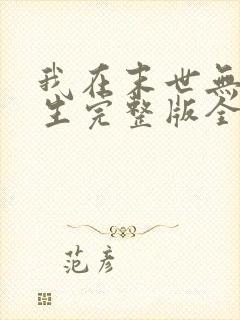 我在末世無
生完整版全
范彥